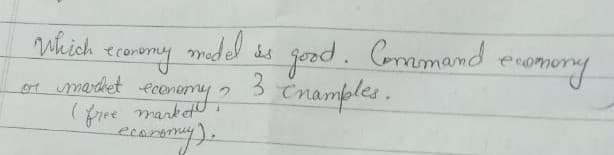 Which economy model is good. Command economy
or market economy? 3 Examples.
(free market
economy).